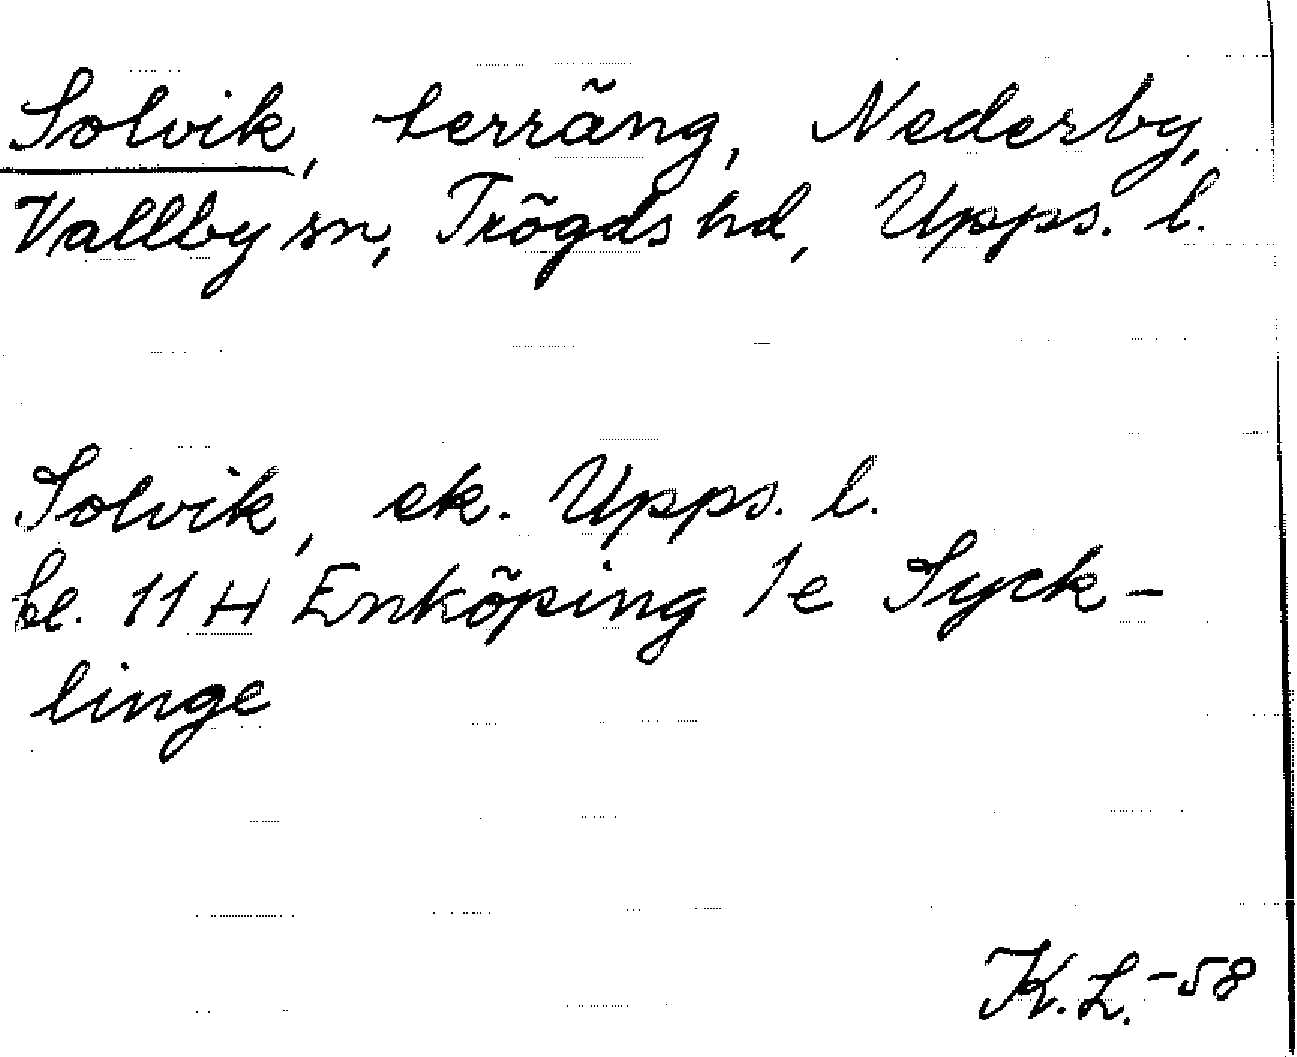 Solvik, terräng, Nederby,
Vallby sn, Trögds hd, Upps. l.
Solvik, ek. Upps. l.
bl. 11 H Enköping 1e Syck-
linge
K.L.-58